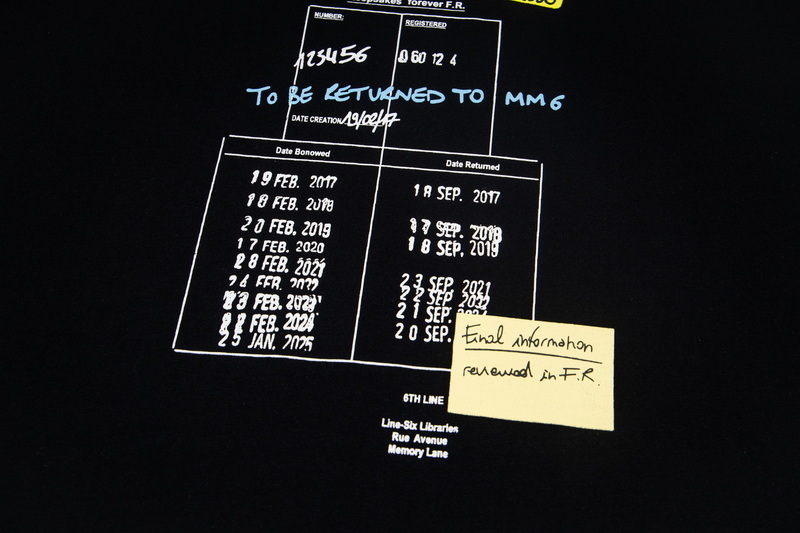 Keepsakes forever F.R.
NUMBER: REGISTERED
123456 060 12 4
TO BE RETURNED TO MM6
DATE CREATION 19/02/17
Date Bonowed Date Returned
19 FEB. 2017 18 SEP. 2017
18 FEB. 2018
20 FEB. 2019 17 SEP. 2018
17 FEB. 2020 18 SEP. 2019
28 FEB. 2021
24 FEB. 2022 23 SEP. 2021
23 FEB. 2023 22 SEP. 2022
22 FEB. 2024 21 SEP.
25 JAN. 2025 20 SEP.
Final information
reviewed in F.R.
6TH LINE
Line-Six Libraries
Rue Avenue
Memory Lane